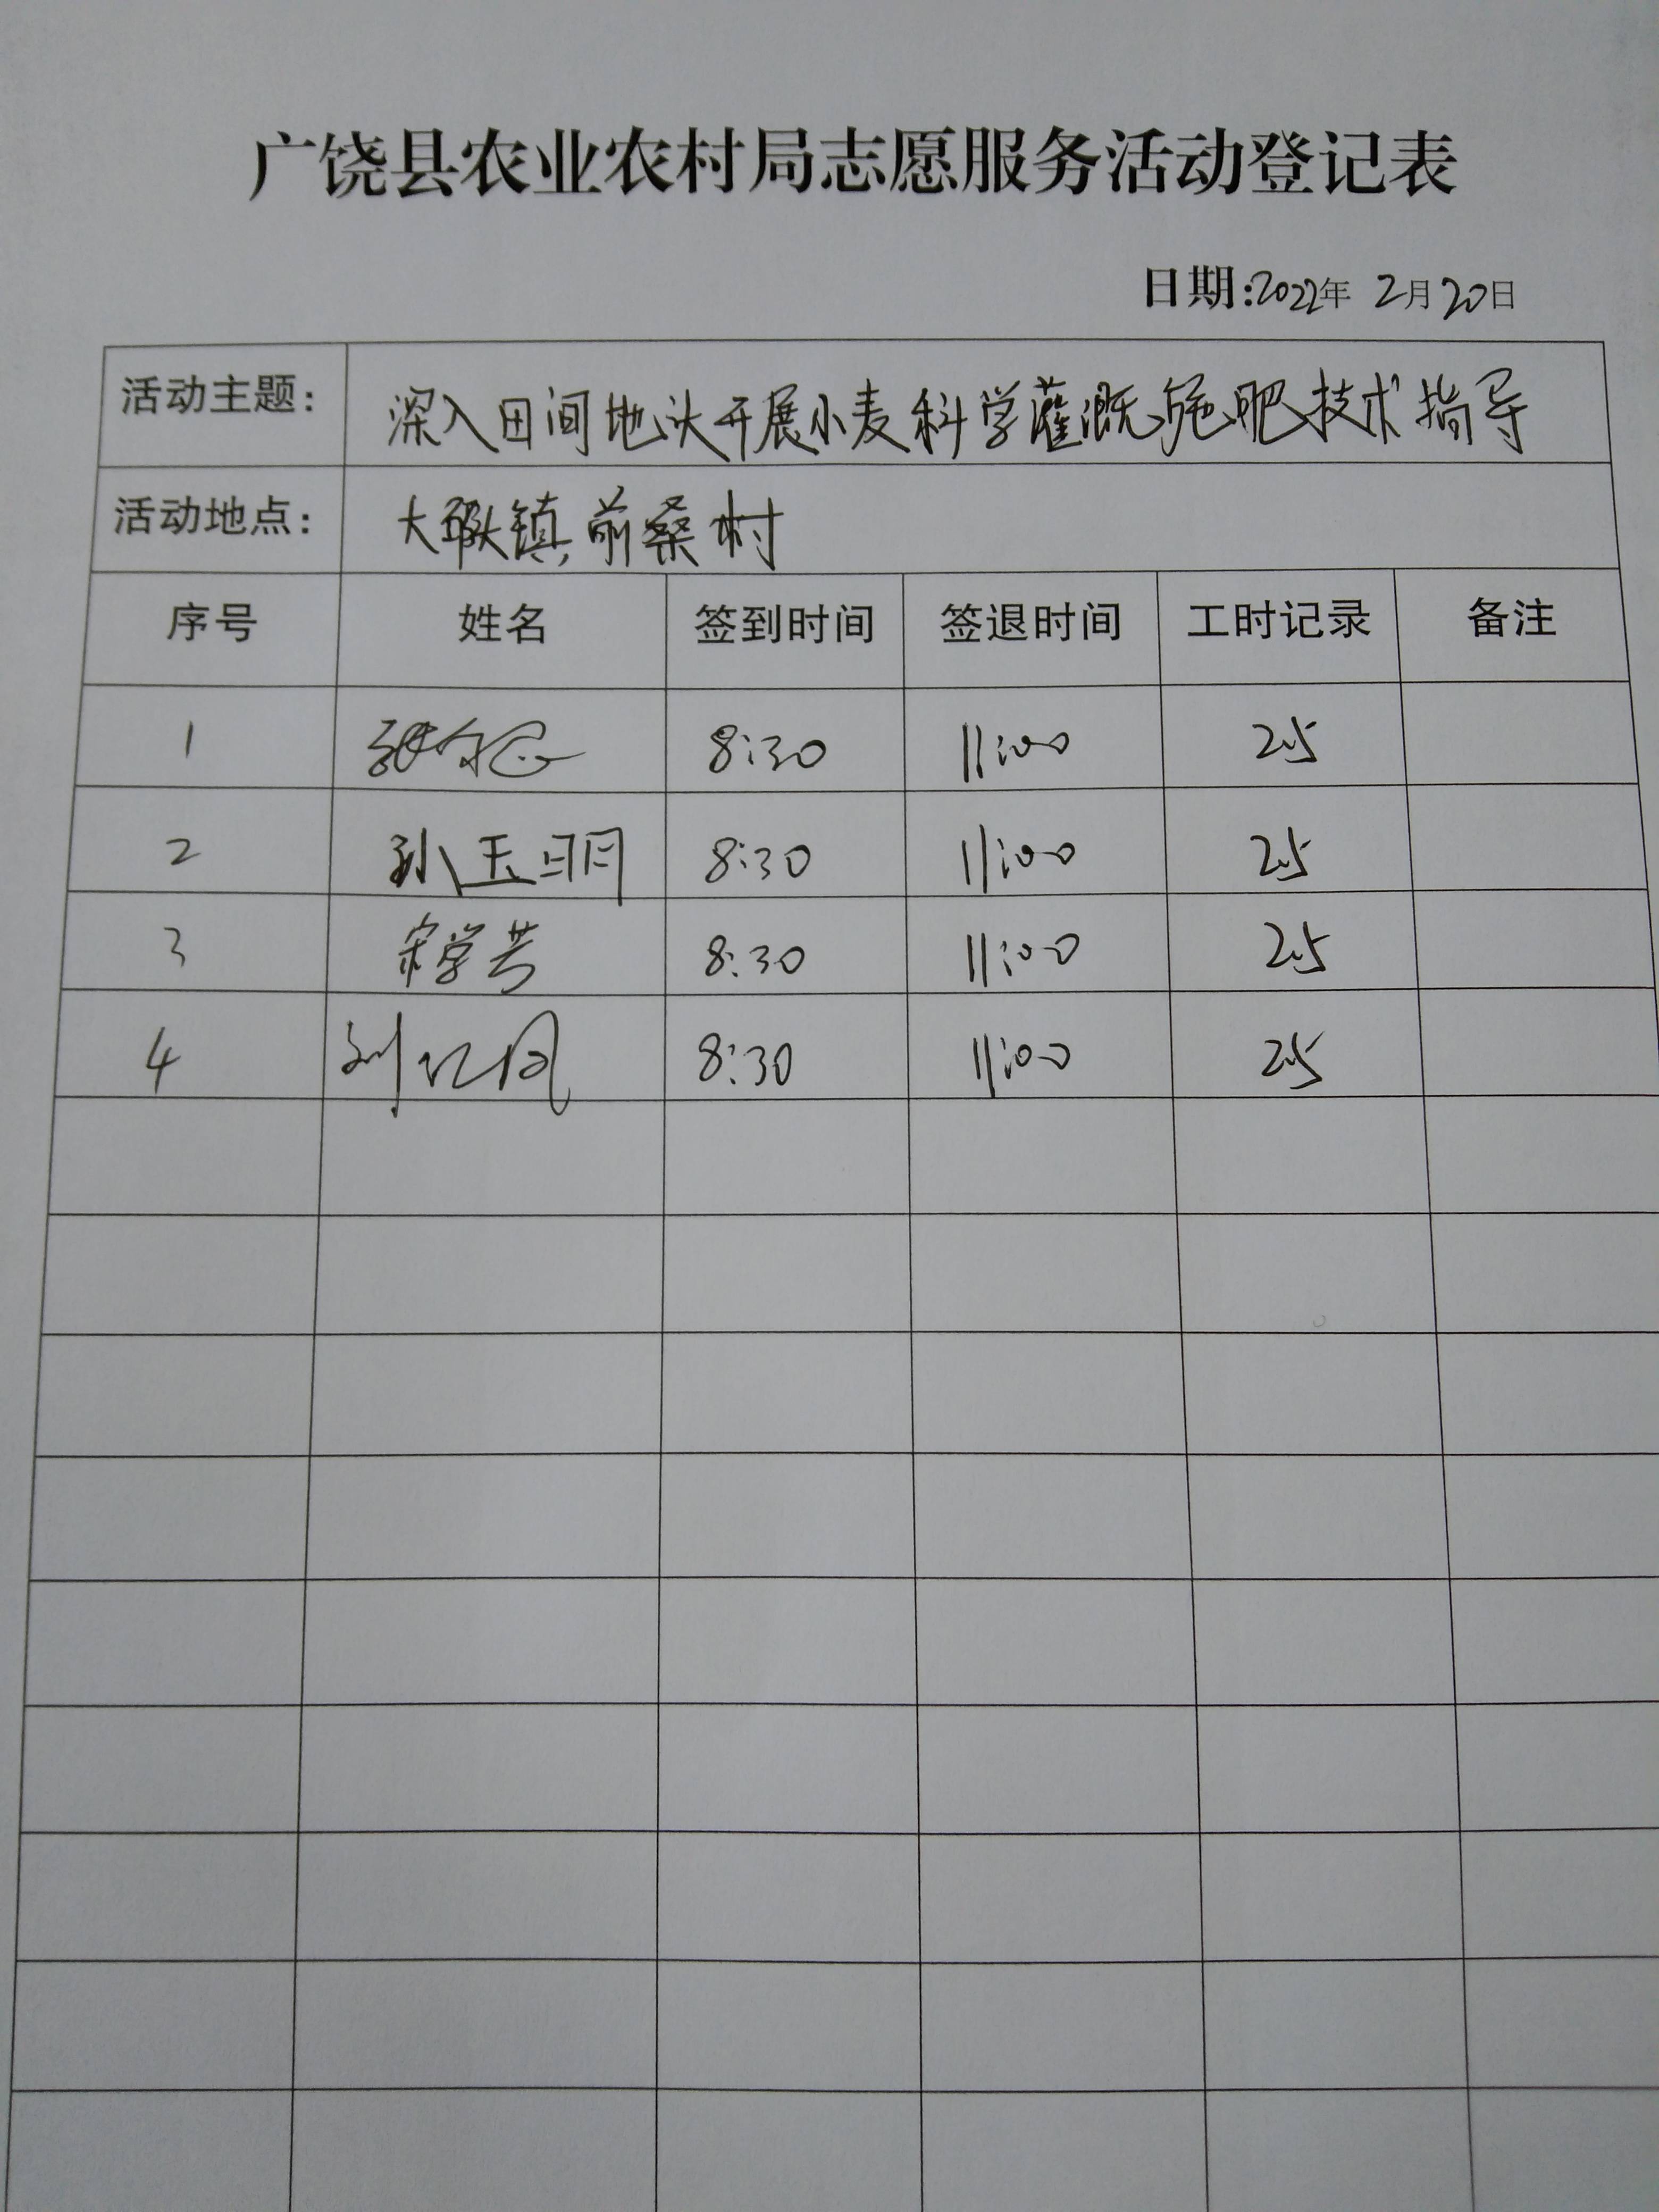 广饶县农业农村局志愿服务活动登记表
日期:2022年 2月20日
活动主题: 深入田间地头开展小麦科学灌溉、施肥技术指导
活动地点: 大王镇前桑村
序号 姓名 签到时间 签退时间 工时记录 备注
1 8:30 11:00 2.5
2 孙玉明 8:30 11:00 2.5
3 宋学芳 8:30 11:00 2.5
4 刘 8:30 11:00 2.5